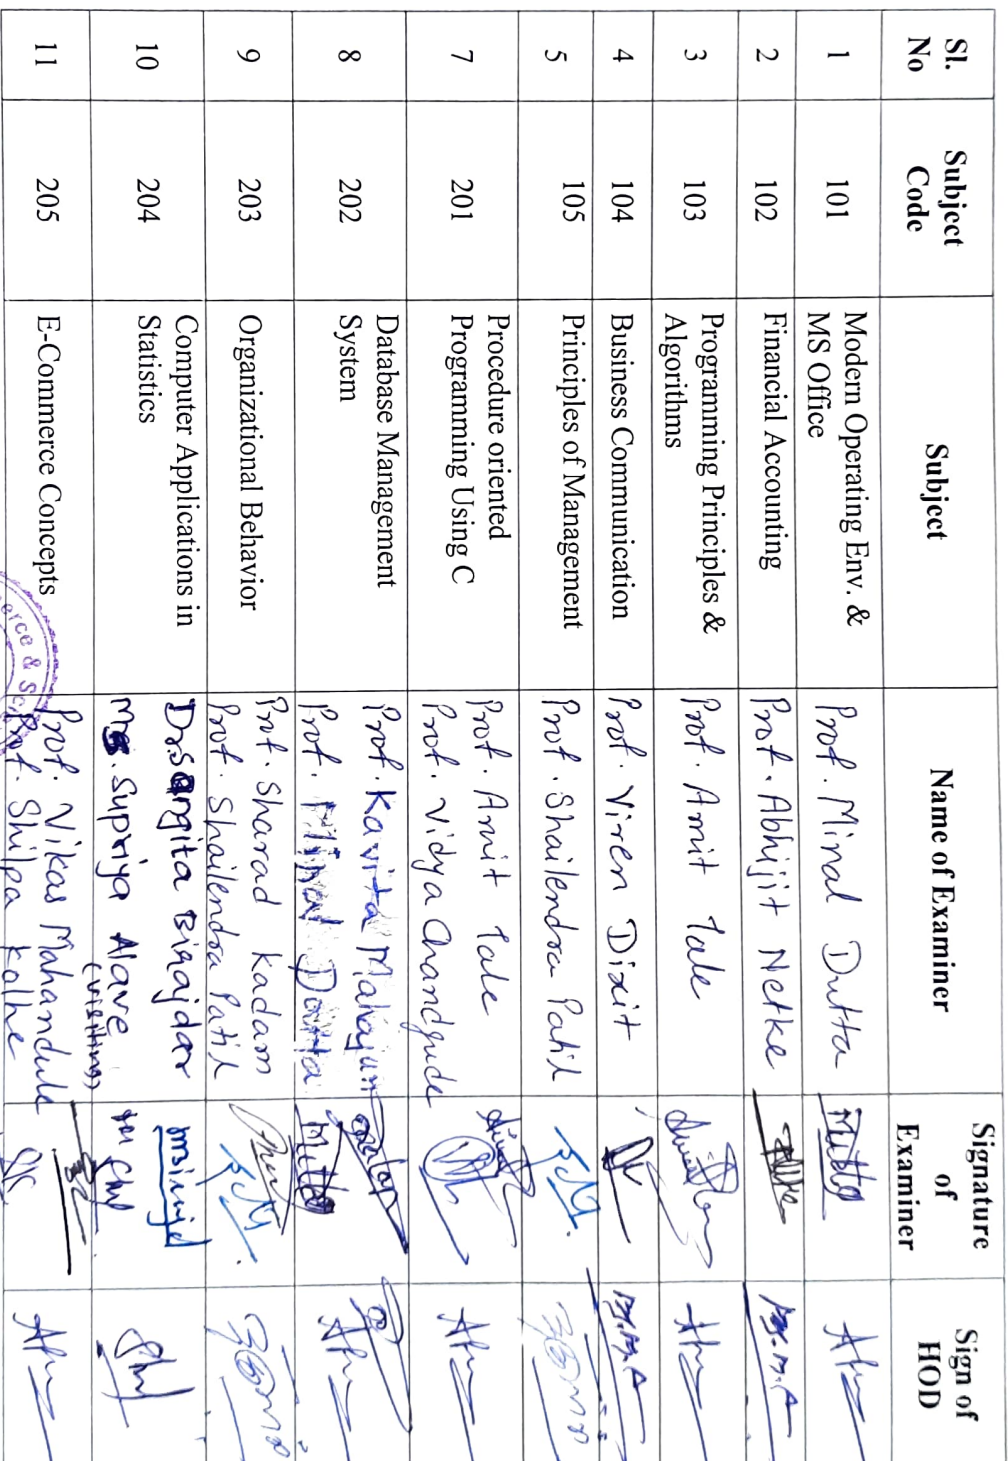 Sl. No | Subject Code | Subject | Name of Examiner | Signature of Examiner | Sign of HOD
1 | 101 | Modern Operating Env. & MS Office | Prof. Minal Dutta
2 | 102 | Financial Accounting | Prof. Abhijit Netke
3 | 103 | Programming Principles & Algorithms | Prof. Amit Tale
4 | 104 | Business Communication | Prof. Viren Dixit
5 | 105 | Principles of Management | Prof. Shailendra Patil
7 | 201 | Procedure oriented Programming Using C | Prof. Amit Tale
Prof. Vidya Chandgude
8 | 202 | Database Management System | Prof. Kavita Mahajan
Prof. Minal Dutta
9 | 203 | Organizational Behavior | Prof. Sharad Kadam
Prof. Shailendra Patil
10 | 204 | Computer Applications in Statistics | Dr. Sangita Birajdar
Ms. Supriya Alave
(visiting)
11 | 205 | E-Commerce Concepts | Prof. Vikas Mahandule
Prof. Shilpa Kolhe